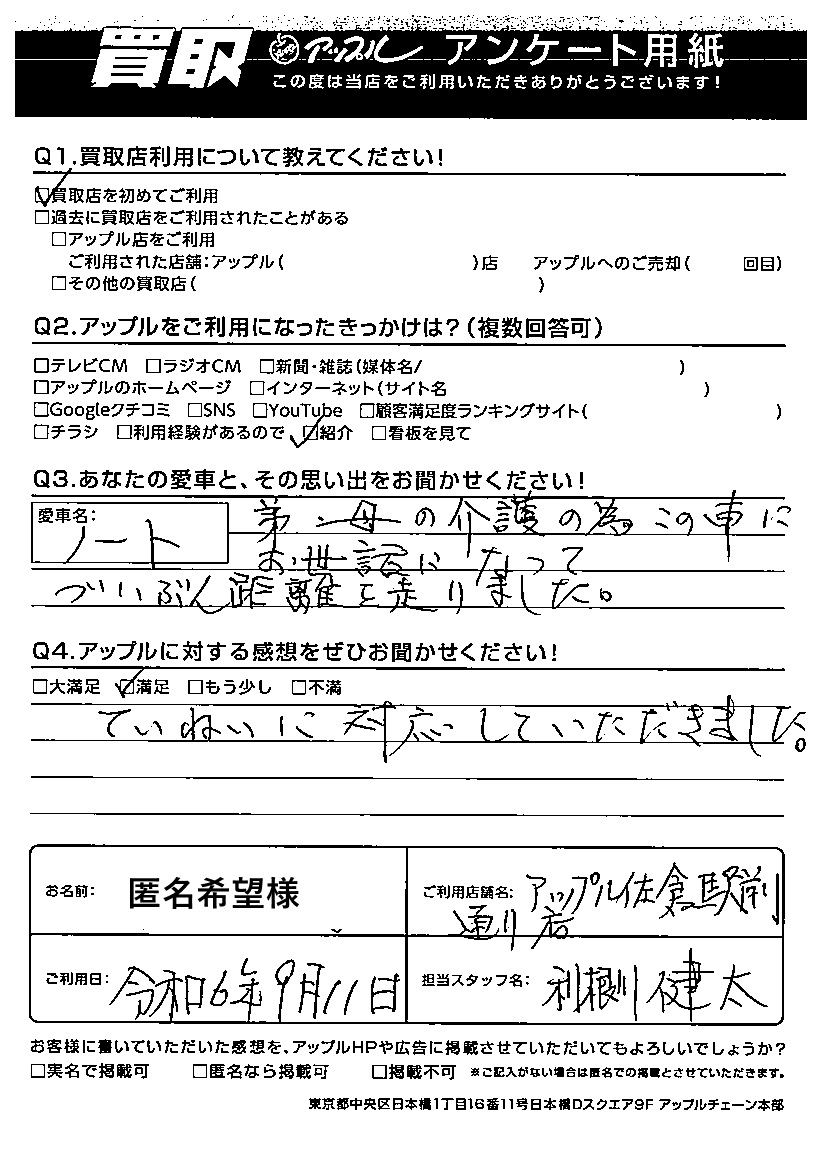 買取 アップル アンケート用紙
この度は当店をご利用いただきありがとうございます!
Q1.買取店利用について教えてください!
☑買取店を初めてご利用
□過去に買取店をご利用されたことがある
□アップル店をご利用
ご利用された店舗:アップル( )店 アップルへのご売却( 回目)
□その他の買取店( )
Q2.アップルをご利用になったきっかけは?(複数回答可)
□テレビCM □ラジオCM □新聞・雑誌(媒体名/ )
□アップルのホームページ □インターネット(サイト名 )
□Googleクチコミ □SNS □YouTube □顧客満足度ランキングサイト( )
□チラシ □利用経験があるので ☑紹介 □看板を見て
Q3.あなたの愛車と、その思い出をお聞かせください!
愛車名: ノート
弟、母の介護の為。この車に
お世話になって
づいぶん距離を走りました。
Q4.アップルに対する感想をぜひお聞かせください!
□大満足 ☑満足 □もう少し □不満
ていねいに対応していただきました。
お名前: 匿名希望様
ご利用店舗名: アップル佐倉駅前
通り店
ご利用日: 令和6年9月11日
担当スタッフ名: 利根川健太
お客様に書いていただいた感想を、アップルHPや広告に掲載させていただいてもよろしいでしょうか?
□実名で掲載可 □匿名なら掲載可 □掲載不可 ※ご記入がない場合は匿名での掲載とさせていただきます。
東京都中央区日本橋1丁目16番11号日本橋Dスクエア9F アップルチェーン本部